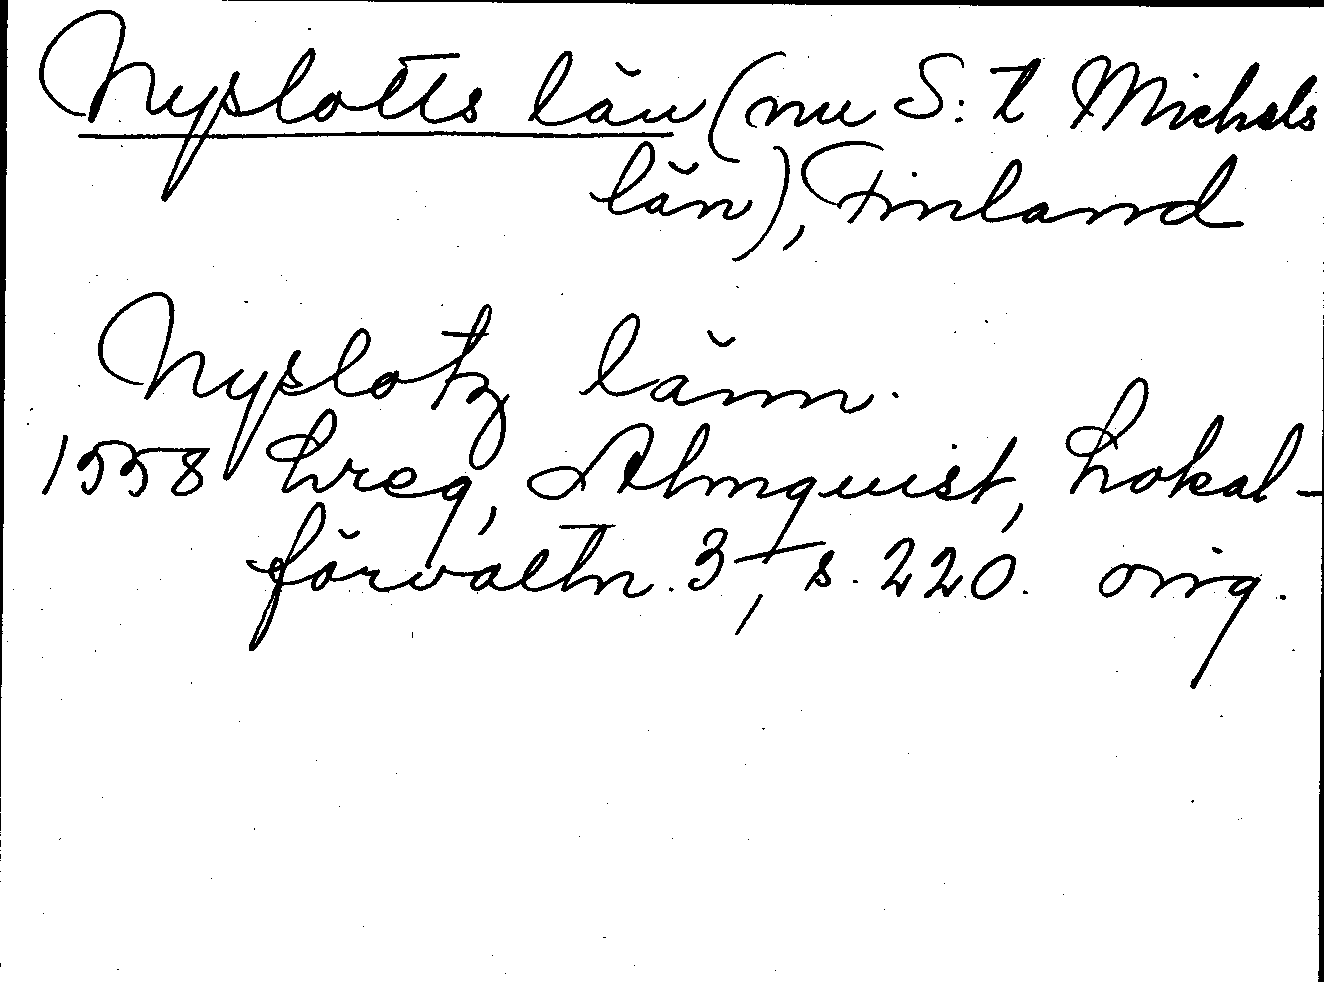 Nyslotts län (nu S:t Michels
län), Finland
Nyslotz länn.
1558 hreg, Almquist, Lokal-
förvaltn. 3, s. 220. orig.